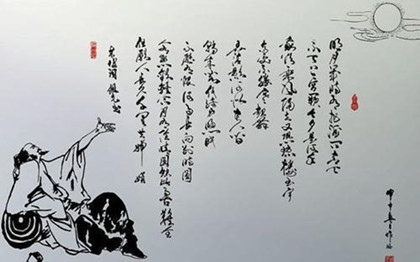 明月几时有把酒问青天
不知天上宫阙今夕是何年
我欲乘风归去又恐琼楼玉宇
高处不胜寒起舞
弄清影何似在人间
转朱阁低绮户照无眠
不应有恨何事长向别时圆
人有悲欢离合月有阴晴圆缺此事古难全
但愿人长久千里共婵娟